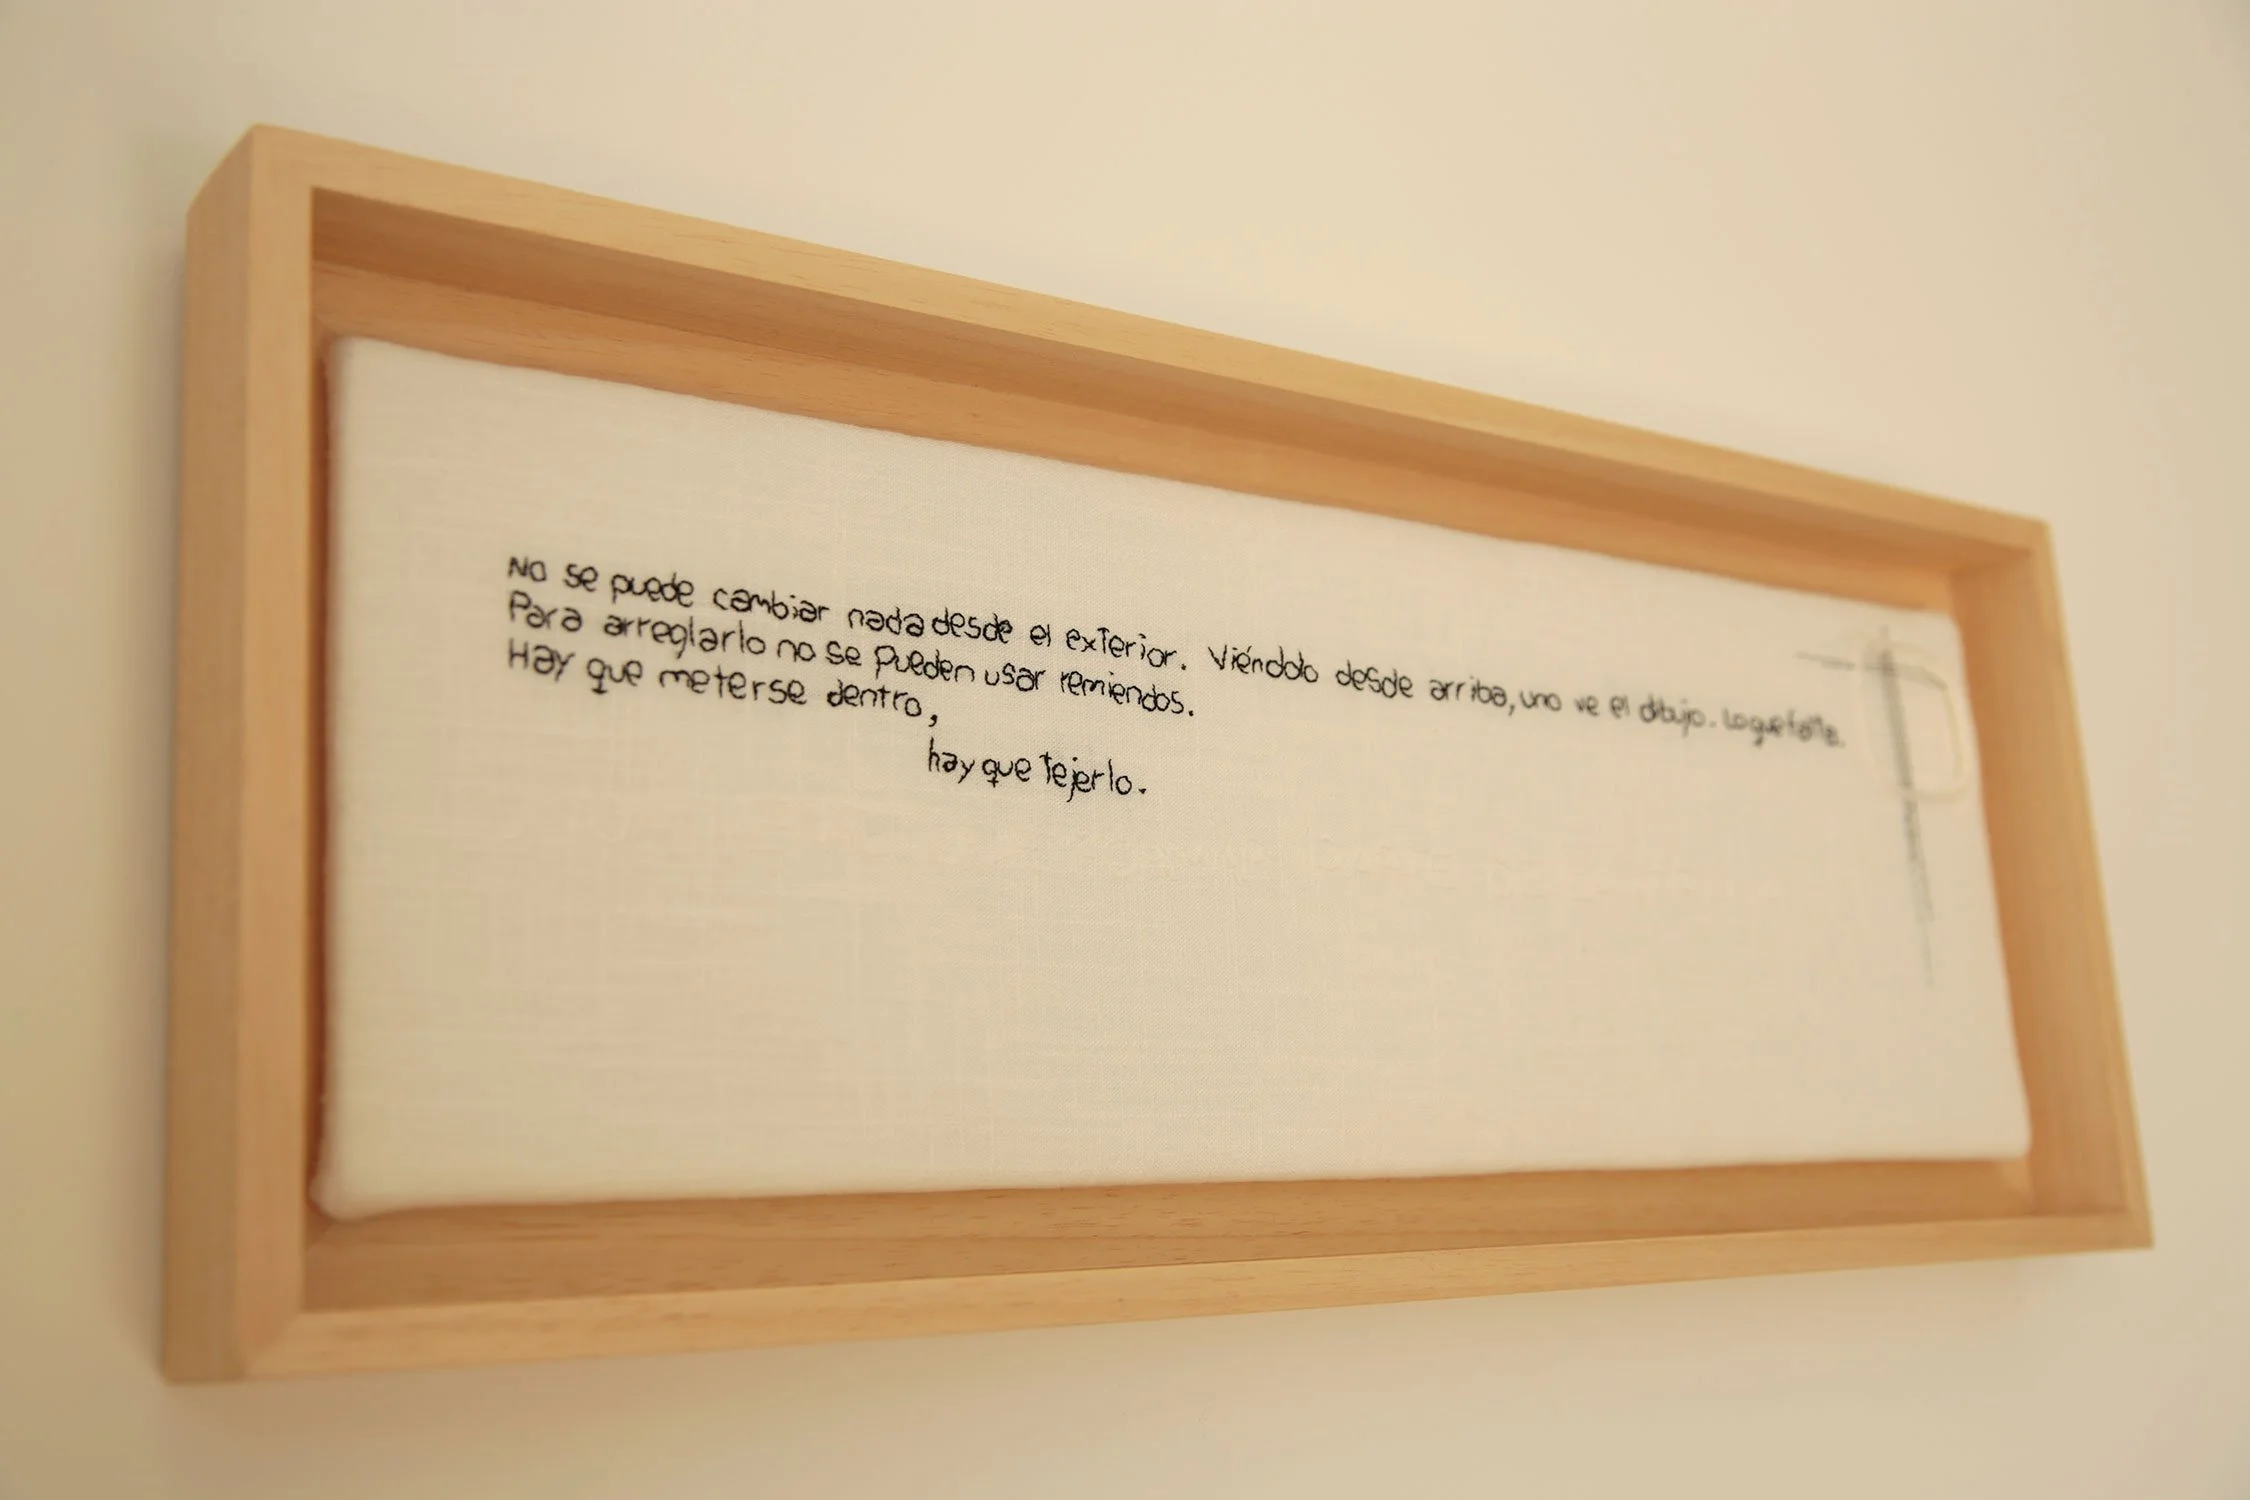 No se puede cambiar nada desde el exterior. Viéndolo desde arriba, uno ve el dibujo. Lo que falla.
Para arreglarlo no se pueden usar remiendos.
Hay que meterse dentro,
hay que tejerlo.